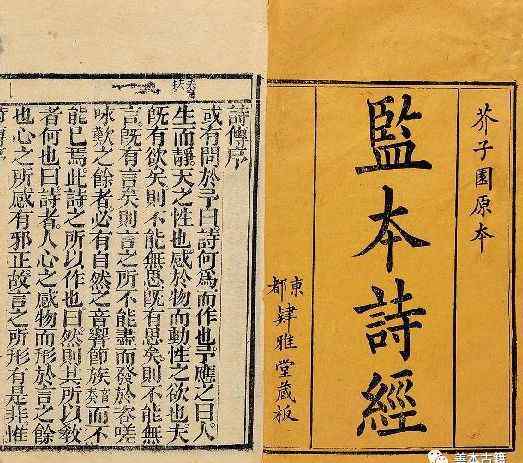 芥子園原本
監本詩經
東都
肄雅堂藏板
詩傳序
或有問於予曰詩何爲而作也予應之曰人
生而靜天之性也感於物而動性之欲也夫
既有欲矣則不能無思既有思矣則不能無
言既有言矣則言之所不能盡而發於咨嗟
咏歎之餘者必有自然之音響節族而不
能已焉此詩之所以作也曰然則其所以教
者何也曰詩者人心之感物而形於言之餘
也心之所感有邪正故言之所形有是非惟
善本古籍